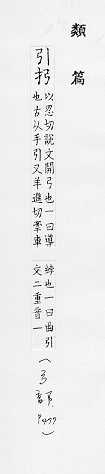 類篇
引㧈
以忍切說文開弓也一曰導
也古从手引又羊進切牽車
綍也一曰曲引
文二重音一